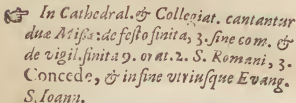 ☞ In Cathedral. & Collegiat. cantantur
duæ Missæ: de festo finita, 3. sine com. &
de vigil. finita 9. orat. 2. S. Romani, 3.
Concede, & in fine vtriusque Evang.
S. Ioann.